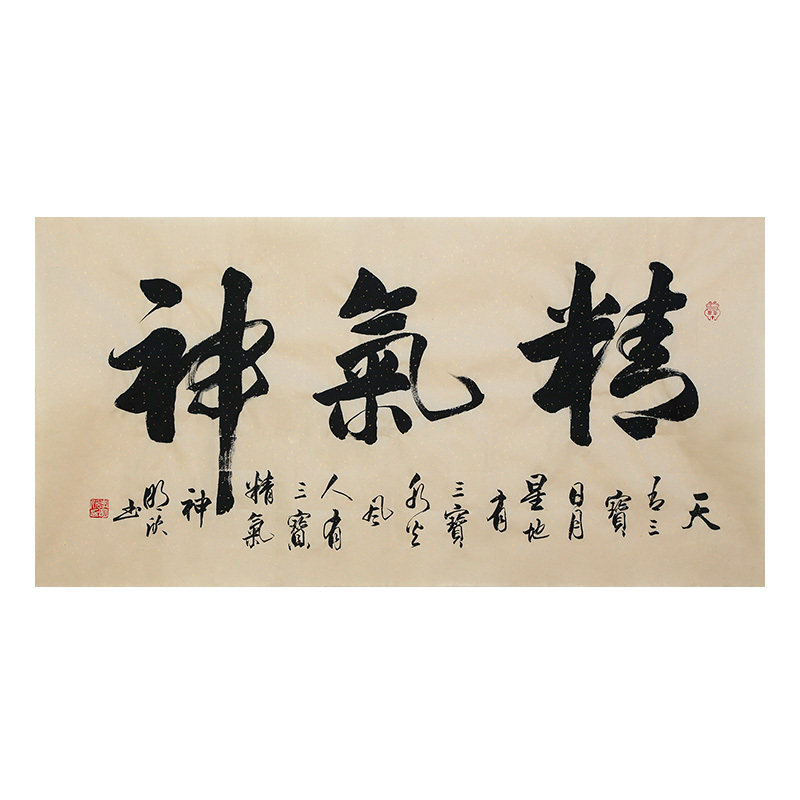 精氣神
天
有三
寶
日月
星地
有
三寶
水火
風
人有
三寶
精氣
神
明
书